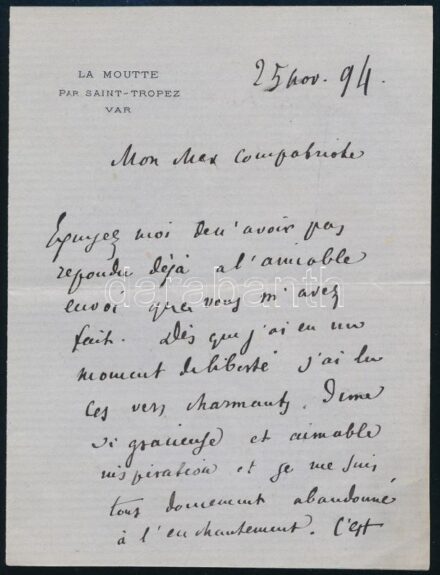 LA MOUTTE
PAR SAINT-TROPEZ
VAR
25 nov. 94.
Mon compatriote
Excusez moi de n'avoir pas
repondu déjà a l'aimable
envoi que vous m'avez
fait. Dès que j'ai eu un
moment de liberté j'ai lu
ces vers charmants, d'une
si gracieuse et aimable
inspiration et je me suis
tout doucement abandonné
à l'enchantement. C'est
darabanth